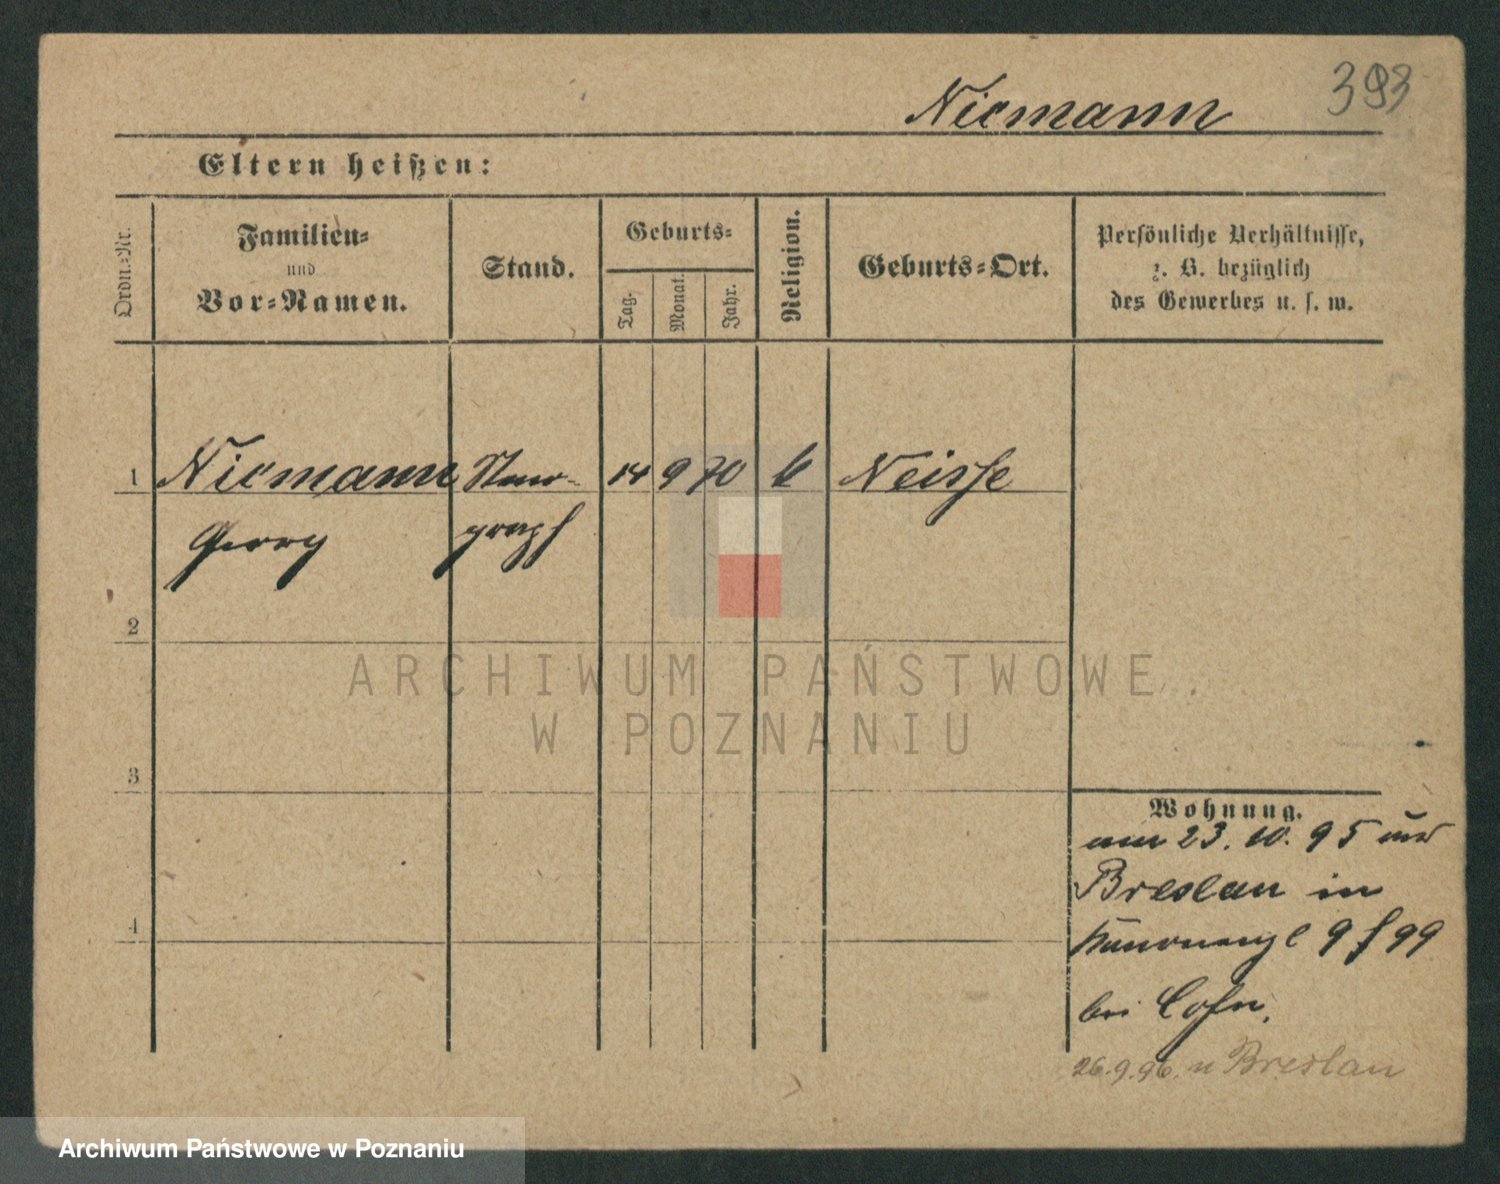 393
Niemann
Eltern heißen:
Ordn.-Nr.
Familien-
und
Vor-Namen.
Stand.
Geburts-
Tag.
Monat.
Jahr.
Religion.
Geburts-Ort.
Persönliche Verhältnisse,
z. B. bezüglich
des Gewerbes u. s. w.
1 Niemann Steno- 14 9 70 k Neisse
Georg graph
2
ARCHIWUM PAŃSTWOWE
W POZNANIU
3
Wohnung.
am 23. 10. 95 aus
Breslau in
9 f 99
4
bei Cohn.
26.9.96. n Breslau
Archiwum Państwowe w Poznaniu